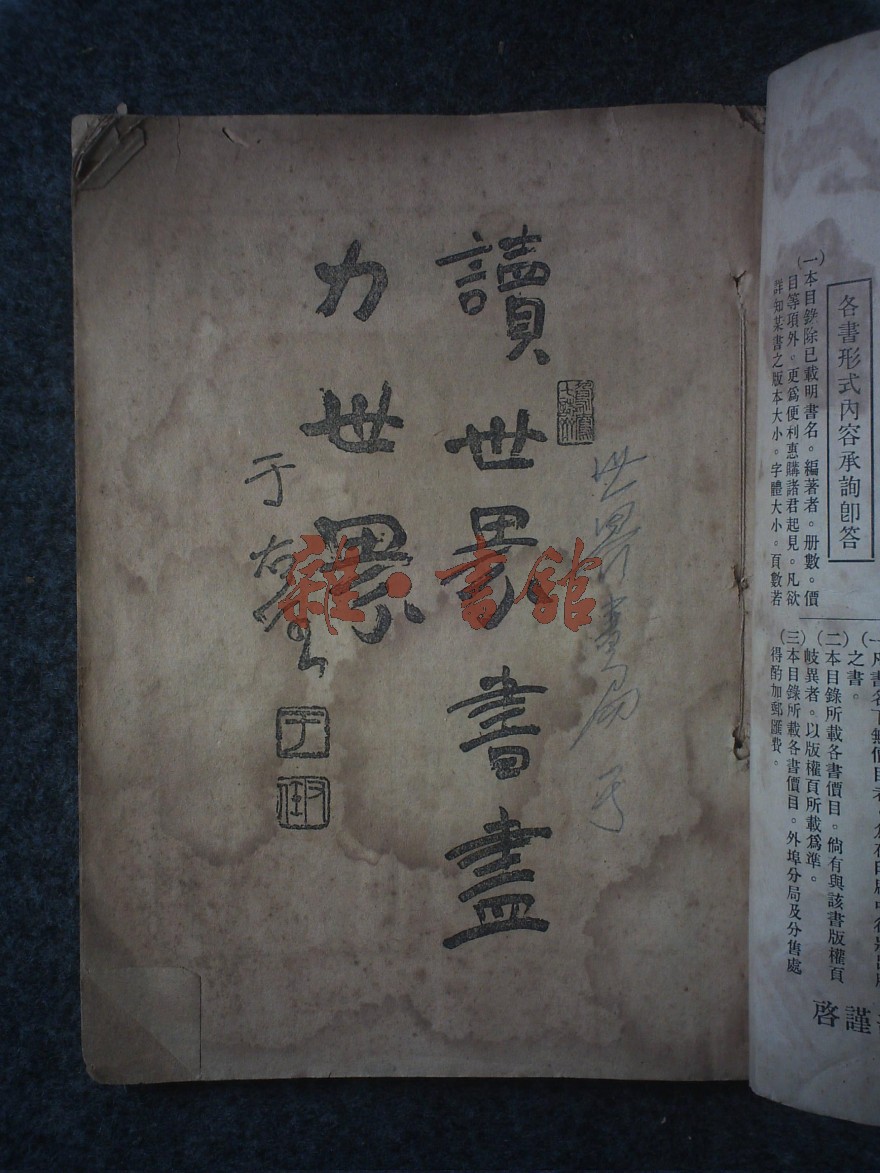 各書形式內容承詢卽答
(一)本目錄除已載明書名。編著者。册數。價
目等項外。更爲便利惠購諸君起見。凡欲
詳知某書之版本大小。字體大小。頁數若
之書。
(二)本目錄所載各書價目。倘有與該書版權頁
岐異者。以版權頁所載爲準。
(三)本目錄所載各書價目。外埠分局及分售處
得酌加郵匯費。
謹啓
世界書局
讀世界書盡
力世界
于右任
雜·書館